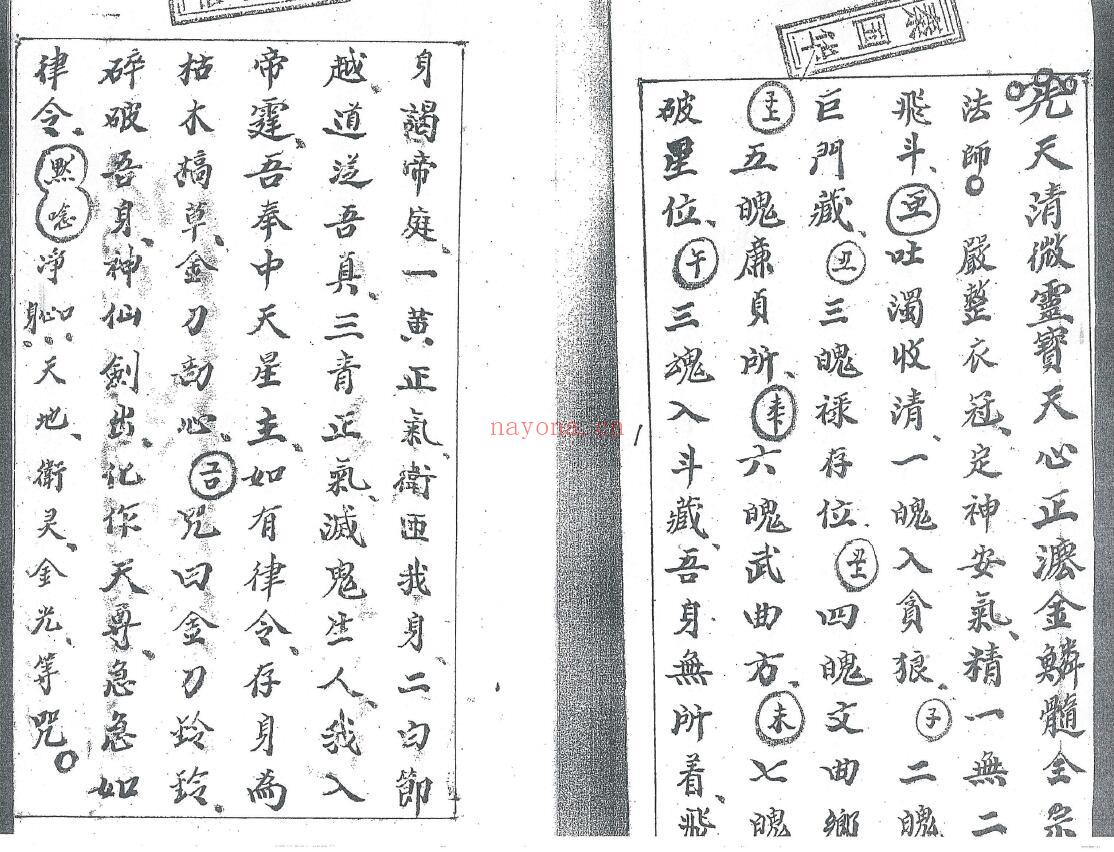 先天清微靈寶天心正灋金鱗髓全宗
法師嚴整衣冠定神安氣精一無二
飛斗吐濁收清一魄入貪狼子二魄
巨門藏丑三魄禄存位四魄文曲鄉
五魄廉貞所六魄武曲方未七魄
破星位午三魂入斗藏吾身無所着飛
身謁帝庭一黄正氣衛匝我身二白節
越道逆吾真三青正氣滅鬼生人我入
帝霆吾奉中天星主如有律令存身為
枯木槁草金刀剖心咒曰金刀鈴鈴
碎破吾身神仙劍出化作天尊急急如
律令默唸净心口身天地衛灵金光等咒
nayona.cn